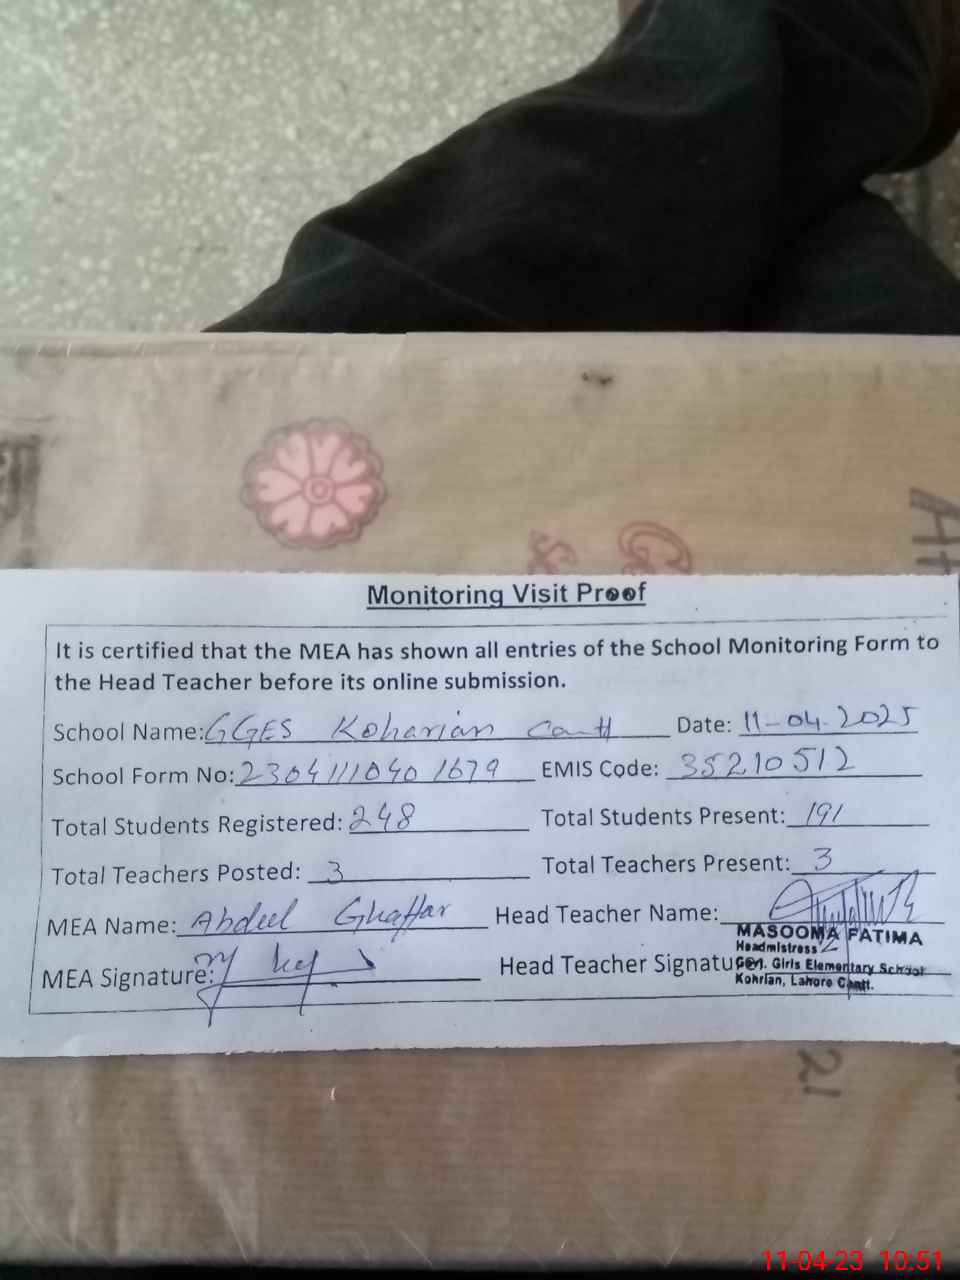 Monitoring Visit Proof
It is certified that the MEA has shown all entries of the School Monitoring Form to
the Head Teacher before its online submission.
School Name: GGES Koharian Cantt Date: 11-04-2025
School Form No: 23041110401679 EMIS Code: 35210512
Total Students Registered: 248 Total Students Present: 191
Total Teachers Posted: 3 Total Teachers Present: 3
MEA Name: Abdul Ghaffar Head Teacher Name:
MASOOMA FATIMA
Headmistress
MEA Signature: Head Teacher Signature:
Gov. Girls Elementary School
Kohrian, Lahore Cantt.
21
11-04-23 10:51